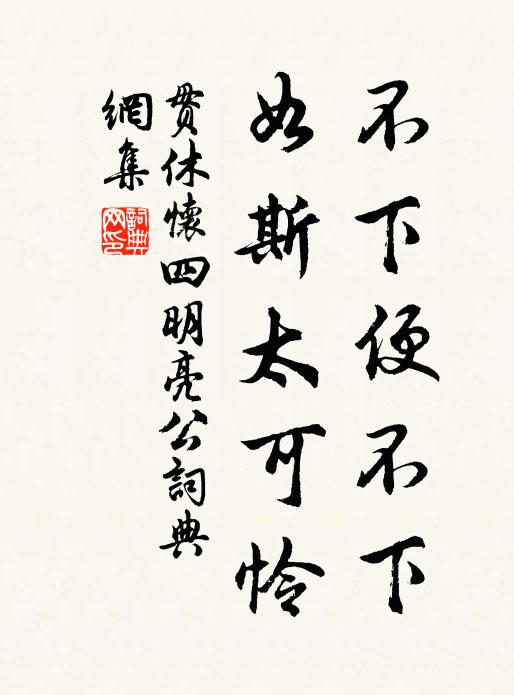 不下便不下
如斯太可怜
贯休懷四明亮公詞典
網集
詞典
网印